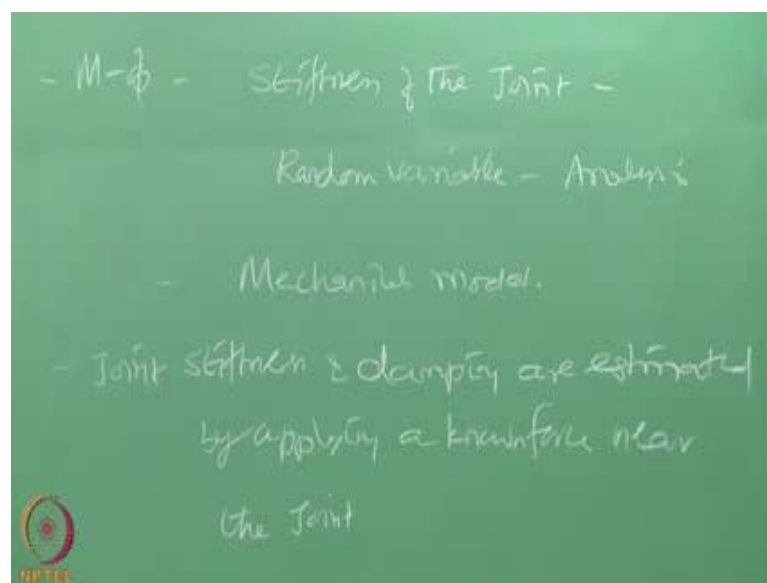 - M-ϕ - Stiffness of the Joint -
Random variable - Analysis
- Mechanical model.
- Joint stiffness & damping are estimated
by applying a known force near
the Joint
NPTEL